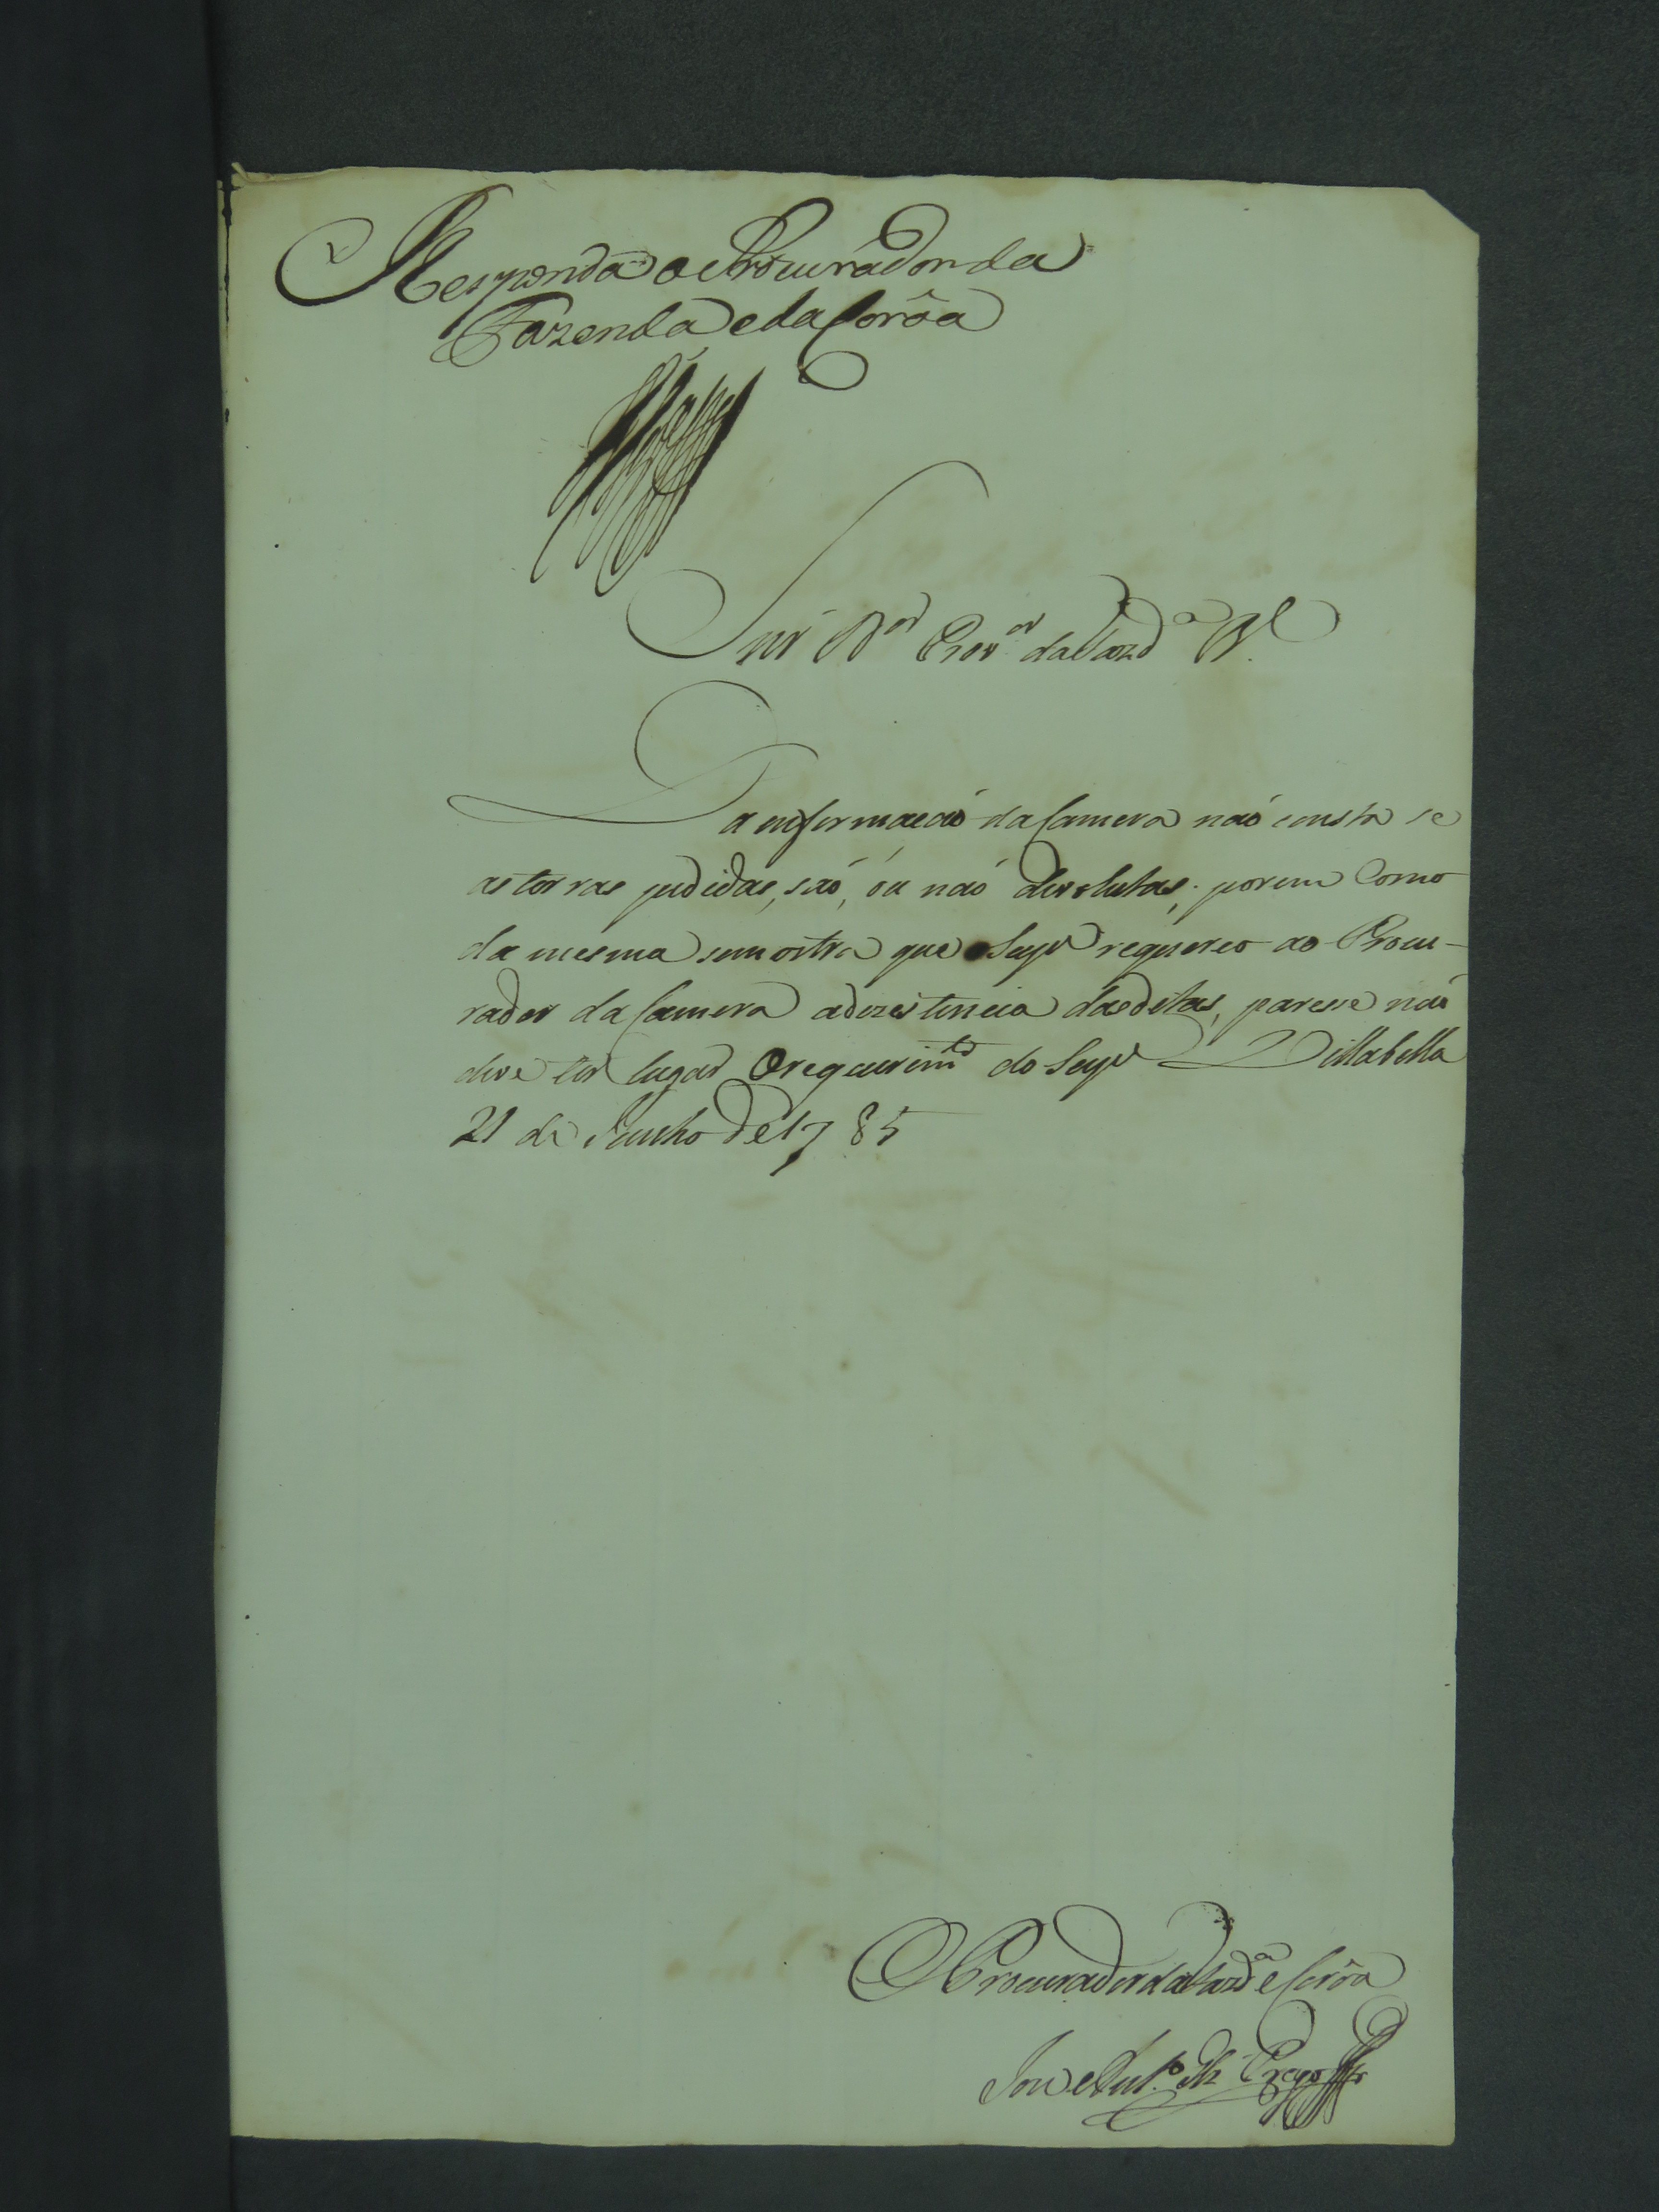 Responda o Procurador da
Fazenda e da Corôa
Snr. D.or Prov.or da Fazd.a R.l
Da emformacaõ da Camera naõ consta se
as terras pedidas, saõ, ou naõ devolutas; porem como
da mesma semostra que o Sup.e requereo ao Procu-
rador da Camera adezistencia das ditas, paresse naõ
deve ter lugar O requerim.to do Sup.e Villabella
21 de Junho de 1785
O Procurador da Fazd.a e Corôa
Jozé Ant.o